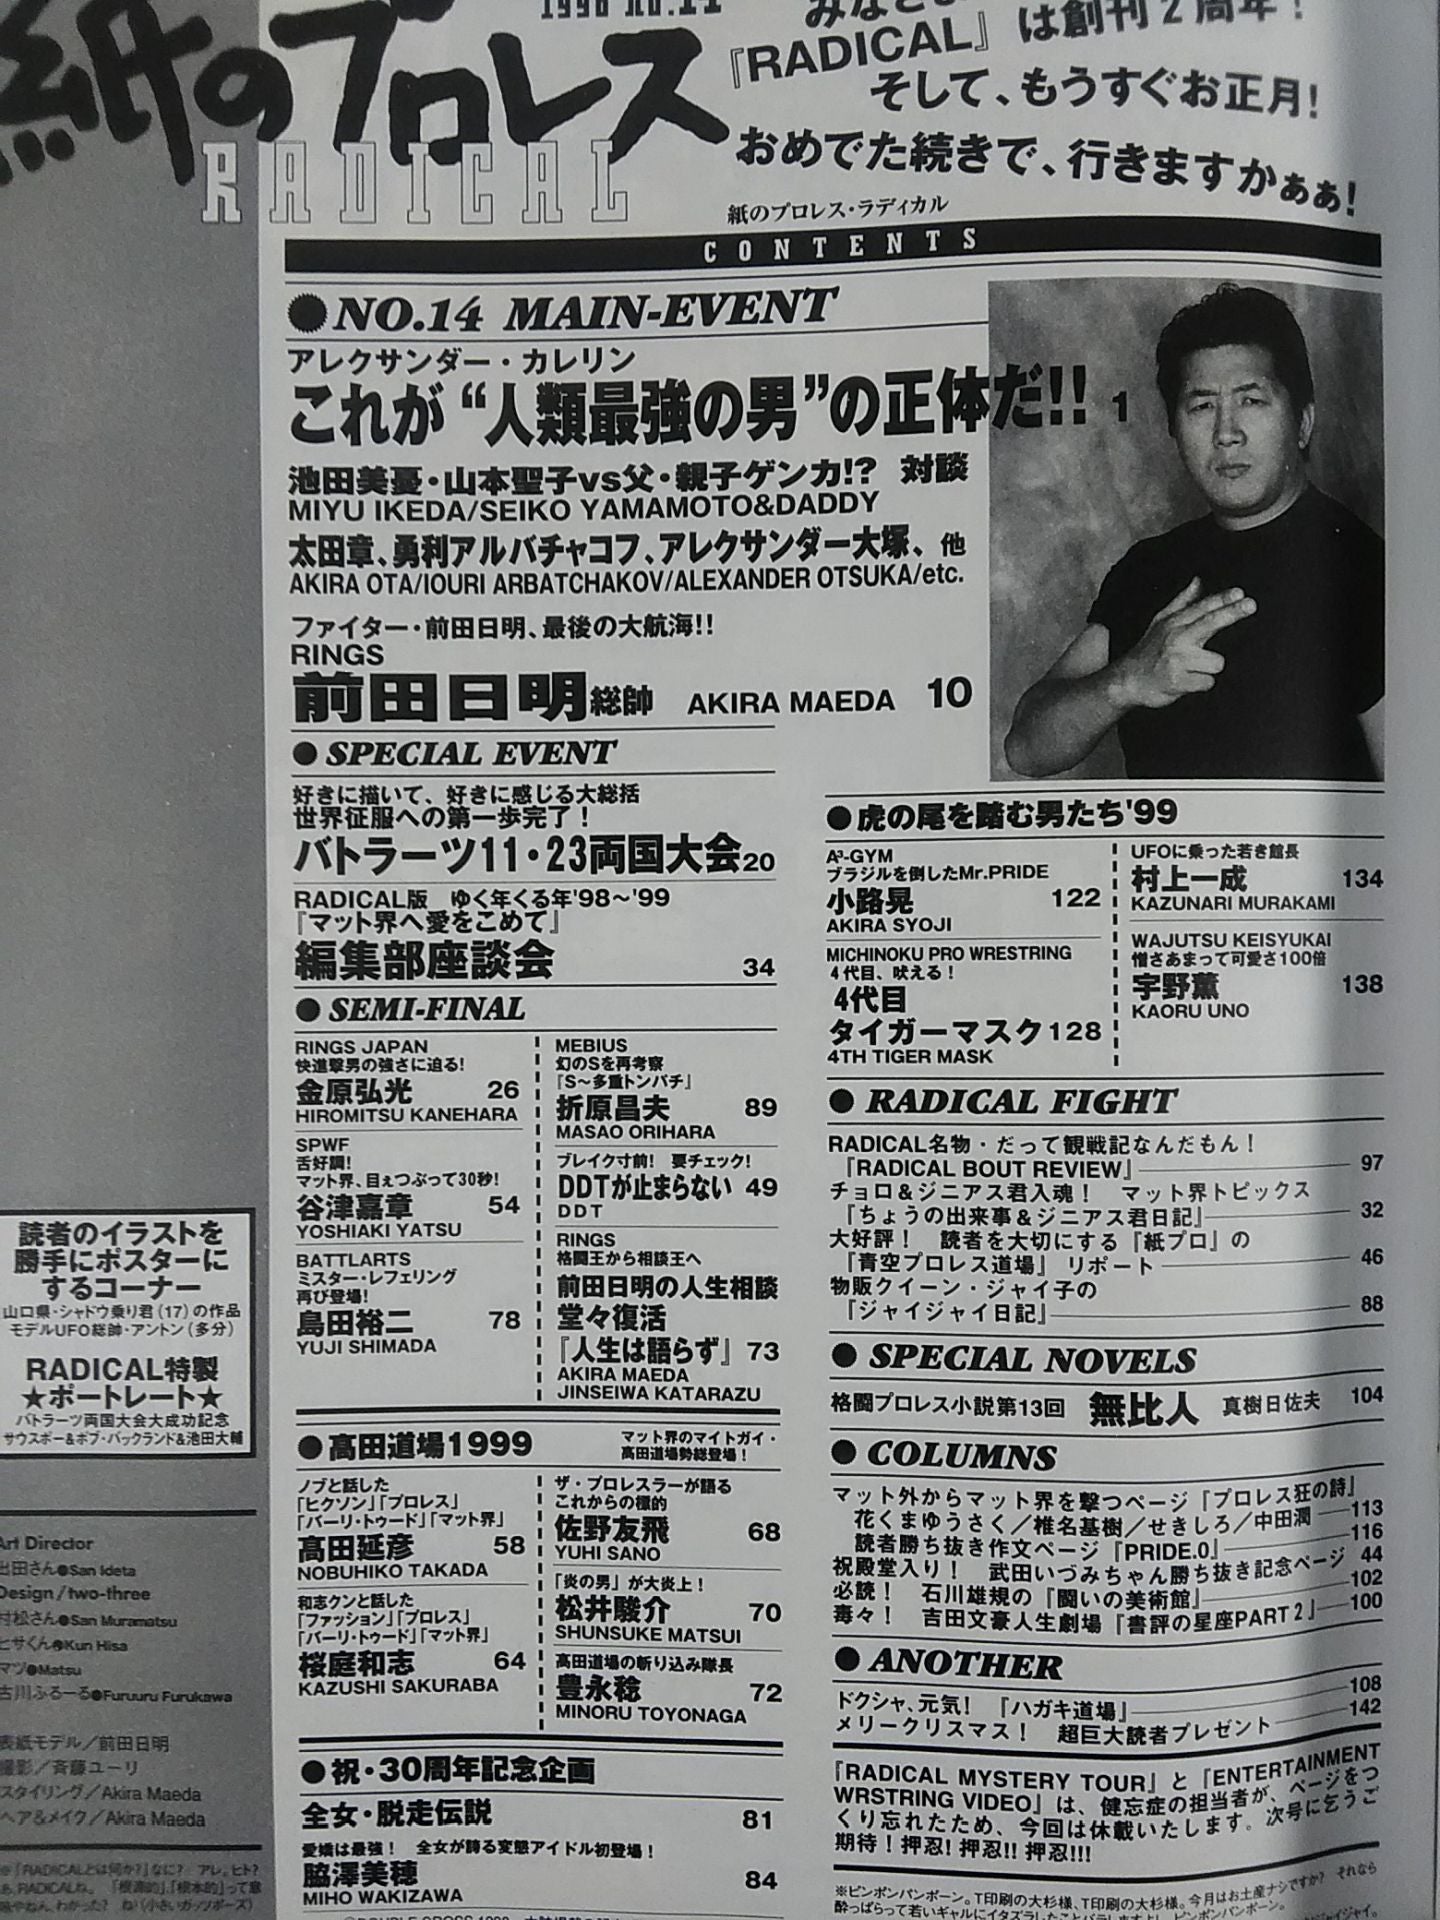 紙のプロレス
RADICAL
『RADICAL』は創刊2周年!
そして、もうすぐお正月!
おめでた続きで、行きますかぁぁ!
紙のプロレス・ラディカル
CONTENTS
NO.14 MAIN-EVENT
アレクサンダー・カレリン
これが“人類最強の男”の正体だ!! 1
池田美憂・山本聖子vs父・親子ゲンカ!? 対談
MIYU IKEDA/SEIKO YAMAMOTO&DADDY
太田章、勇利アルバチャコフ、アレクサンダー大塚、他
AKIRA OTA/IOURI ARBATCHAKOV/ALEXANDER OTSUKA/etc.
ファイター・前田日明、最後の大航海!!
RINGS
前田日明総帥 AKIRA MAEDA 10
●SPECIAL EVENT
好きに描いて、好きに感じる大総括
世界征服への第一歩完了!
バトラーツ11・23両国大会20
RADICAL版 ゆく年くる年'98〜'99
『マット界へ愛をこめて』
編集部座談会 34
●SEMI-FINAL
RINGS JAPAN
快進撃男の強さに迫る!
金原弘光 26
HIROMITSU KANEHARA
SPWF
舌好調!
マット界、目ぇつぶって30秒!
谷津嘉章 54
YOSHIAKI YATSU
BATTLARTS
ミスター・レフェリング
再び登場!
島田裕二 78
YUJI SHIMADA
MEBIUS
幻のSを再考察
『S〜多重トンパチ』
折原昌夫 89
MASAO ORIHARA
ブレイク寸前! 要チェック!
DDTが止まらない 49
DDT
RINGS
格闘王から相談王へ
前田日明の人生相談
堂々復活
『人生は語らず』 73
AKIRA MAEDA
JINSEIWA KATARAZU
●高田道場1999
マット界のマイトガイ・
高田道場勢総登場!
ノブと話した
「ヒクソン」「プロレス」
「バーリ・トゥード」「マット界」
高田延彦 58
NOBUHIKO TAKADA
和志クンと話した
「ファッション」「プロレス」
「バーリ・トゥード」「マット界」
桜庭和志 64
KAZUSHI SAKURABA
ザ・プロレスラーが語る
これからの標的
佐野友飛 68
YUHI SANO
「炎の男」が大炎上!
松井駿介 70
SHUNSUKE MATSUI
高田道場の斬り込み隊長
豊永稔 72
MINORU TOYONAGA
●祝・30周年記念企画
全女・脱走伝説 81
愛嬌は最強! 全女が誇る変態アイドル初登場!
脇澤美穂 84
MIHO WAKIZAWA
●虎の尾を踏む男たち'99
A³-GYM
ブラジルを倒したMr.PRIDE
小路晃 122
AKIRA SYOJI
MICHINOKU PRO WRESTRING
4代目、吠える!
4代目
タイガーマスク128
4TH TIGER MASK
UFOに乗った若き館長
村上一成 134
KAZUNARI MURAKAMI
WAJUTSU KEISYUKAI
憎さあまって可愛さ100倍
宇野薫 138
KAORU UNO
●RADICAL FIGHT
RADICAL名物・だって観戦記なんだもん!
『RADICAL BOUT REVIEW』 97
チョロ&ジニアス君入魂! マット界トピックス
『ちょうの出来事&ジニアス君日記』 32
大好評! 読者を大切にする『紙プロ』の
『青空プロレス道場』 リポート 46
物販クイーン・ジャイ子の
『ジャイジャイ日記』 88
●SPECIAL NOVELS
格闘プロレス小説第13回 無比人 真樹日佐夫 104
●COLUMNS
マット外からマット界を撃つページ『プロレス狂の詩』
花くまゆうさく/椎名基樹/せきしろ/中田潤 113
読者勝ち抜き作文ページ『PRIDE.0』 116
祝殿堂入り! 武田いづみちゃん勝ち抜き記念ページ 44
必読! 石川雄規の『闘いの美術館』 102
毒々! 吉田文豪人生劇場『書評の星座PART2』 100
●ANOTHER
ドクシャ、元気! 『ハガキ道場』 108
メリークリスマス! 超巨大読者プレゼント 142
『RADICAL MYSTERY TOUR』と『ENTERTAINMENT
WRSTRING VIDEO』は、健忘症の担当者が、ページをつ
くり忘れたため、今回は休載いたします。次号に乞うご
期待!押忍!押忍!!押忍!!!
※ピンポンパンポーン。T印刷の大杉様、T印刷の大杉様。今月はお土産ナシですか? それなら
読者のイラストを
勝手にポスターに
するコーナー
山口県・シャドウ乗り君(17)の作品
モデルUFO総帥・アントン(多分)
RADICAL特製
★ポートレート★
バトラーツ両国大会大成功記念
サウスポー&ボブ・バックランド&池田大輔
Art Director
出田さん●San Ideta
Design/two-three
村松さん●San Muramatsu
ヒサくん●Kun Hisa
マツ●Matsu
古川ふるーる●Furuuru Furukawa
表紙モデル/前田日明
撮影/斉藤ユーリ
スタイリング/Akira Maeda
ヘア&メイク/Akira Maeda